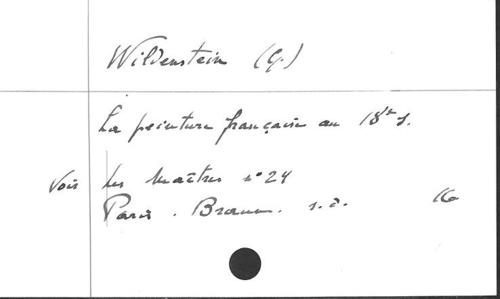 Wildenstein (G.)
La peinture française au 18e s.
Voir Les Maîtres n° 24
Paris. Braun. s.d. 16